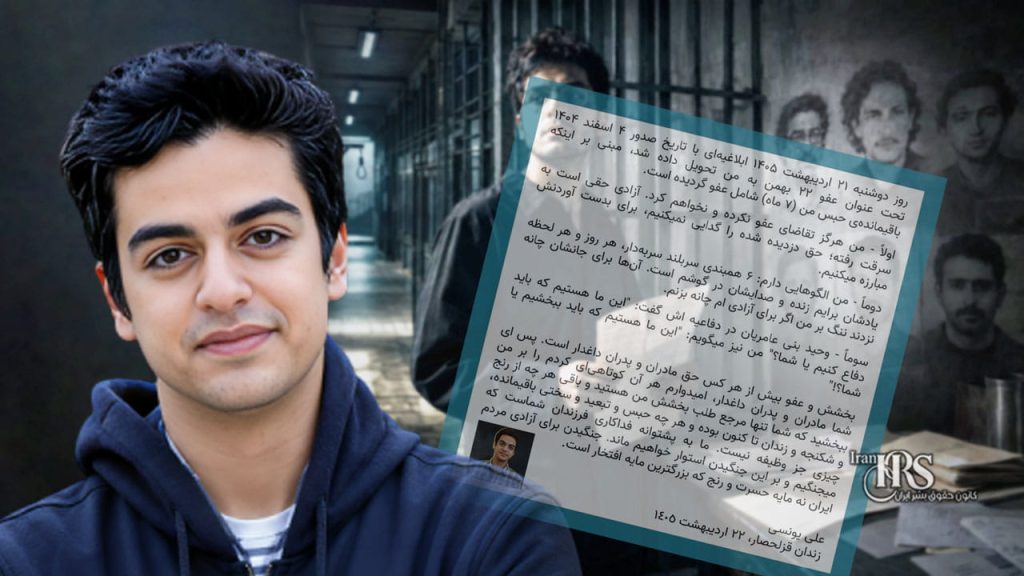 روز دوشنبه ۲۱ اردیبهشت ۱۴۰۵ ابلاغیه‌ای با تاریخ صدور ۴ اسفند ۱۴۰۴
تحت عنوان عفو ۲۲ بهمن به من تحویل داده شد، مبنی بر اینکه
باقیمانده‌ی حبس من (۷ ماه) شامل عفو گردیده است.
اولاً - من هرگز تقاضای عفو نکرده و نخواهم کرد. آزادی حقی است به
سرقت رفته؛ حق دزدیده شده را گدایی نمیکنیم، برای بدست آوردنش
مبارزه میکنیم.
دوماً - من الگوهایی دارم: ۶ همبندی سربلند سربه‌دار، هر روز و هر لحظه
یادشان برایم زنده و صدایشان در گوشم است. آن‌ها برای جانشان چانه
نزدند ننگ بر من اگر برای آزادی ام چانه بزنم.
سوماً - وحید بنی عامریان در دفاعیه اش گفت: "این ما هستیم که باید
دفاع کنیم یا شما؟" من نیز میگویم: "این ما هستیم که باید ببخشیم یا
شما؟!"
بخشش و عفو بیش از هر کس حق مادران و پدران داغدار است. پس ای
شما مادران و پدران داغدار، امیدوارم هر آن کوتاهی‌ای کردم را بر من
ببخشید که شما تنها مرجع طلب بخشش من هستید و باقی هر چه از رنج
و شکنجه و زندان تا کنون بوده و هر چه حبس و تبعید و سختی باقیمانده،
چیزی جز وظیفه نیست. ما به پشتوانه فداکاری فرزندان شماست که
میجنگیم و بر این جنگیدن استوار خواهیم ماند. جنگیدن برای آزادی مردم
ایران نه مایه حسرت و رنج که بزرگترین مایه افتخار است.
علی یونسی
زندان قزلحصار، ۲۲ اردیبهشت ۱۴۰۵
Iran HRS
کانون حقوق بشر ایران